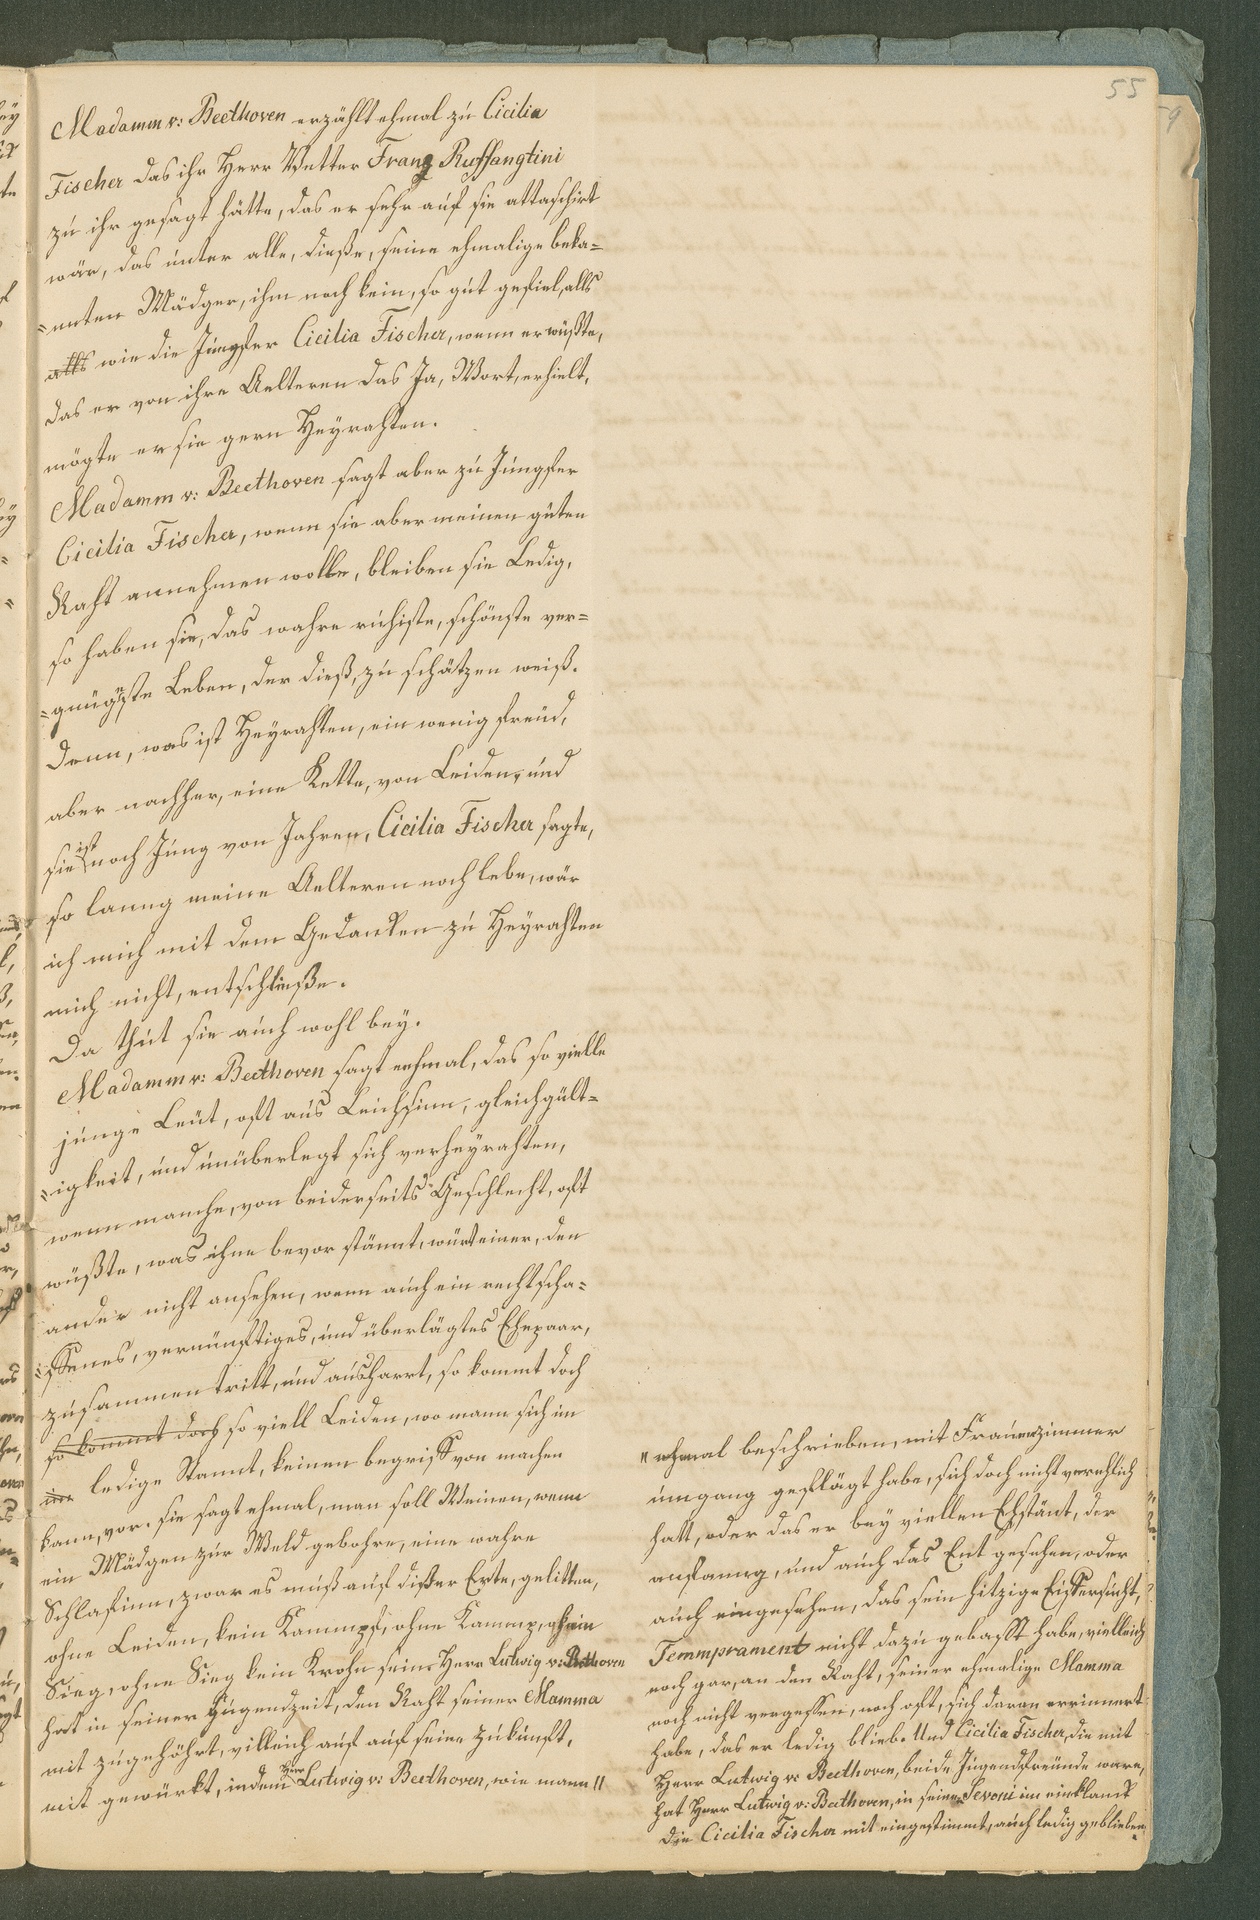 55
59
Madamm v: Beethoven erzählt ehmal zu Cicilia
Fischer das ihr Herr Vetter Franz Ruffangtini
zu ihr gesagt hätte, das er sehr auf sie attaschirt
wär, das unter alle, dieße, seine ehmalige beka=
=nnten Mädger, ihm noch kein, so gut gefiel, alls
alls wie die Jungfer Cicilia Fischer, wenn er wüßte,
das er von ihre Aelteren das Ja, Wort, erhielt,
mögte er sie gern Heyrahten.
Madamm v: Beethoven sagt aber zu Jungfer
Cicilia Fischer, wenn sie aber meinen guten
Raht annehmen wolle, bleiben sie Ledig,
so haben sie, das wahre ruhiste, schönste ver=
=gnügste Leben, der dieß, zu schätzen weiß.
Denn, was ist Heyrahten, ein wenig freud,
aber nachher, eine Kette, von Leiden, und
sie ist noch Jung von Jahren, Cicilia Fischer sagte,
so lanng meine Aelteren noch lebe, wär
ich mich mit dem Gedanken zu Heyrahten
mich nicht, entschließe.
Da thut sie auch wohl bey.
Madamm v: Beethoven sagt eehmal, das so vielle
junge Leut, oft aus Leichsinn, gleichgült=
=igkeit, und unüberlegt sich verheyrahten,
wenn manche, von beiderseits Geschlecht, oft
wüßte, was ihne bevor stännt, würt einer, den
ander nicht ansehen, wenn auch ein rechtscha=
=ffenes, vernünftiges, und überlägtes Ehepaar,
zusammen tritt, und ausharrt, so kommt doch
so kommt doch so viell Leiden, wo mann sich im
im ledige Stannt, keinen begriff von machen
kann, vor. sie sagt ehmal, man soll Weinen, wenn
ein Mädgen zur Weld gebohre, eine wahre
Schlafinn, zwar es muß auf dißer Erte, gelitten,
ohne Leiden, kein Kammpf, ohne Kammp, kein
Sieg, ohne Sieg kein Krohn sein Herr Lutwig v: Bethoven
hat in seiner Jugendzeit, den Raht seiner Mamma
mit zugehöhrt, villeich auf auf seine Zukunft,
mit gewürkt, indem Herr Lutwig v: Beethoven, wie mann //
// ehmal beschrieben, mit Frauenzimmer
umgang geflägt habe, sich doch nicht verehlich
hatt, oder das er bey viellen Ehstänt, der
anfanng, und auch das Ent gesehen, oder
auch eingesehen, das sein hitzige Eiffersucht,
Temmprament nicht dazu gebasst habe, vielleich
noch gar, an den Raht, seiner ehmalige Mamma
noch nicht vergessen, noch oft, sich daran errinnert
habe, das er ledig blieb. Und Cicilia Fischer, die mit
Herr Lutwig v: Beethoven, beide Jugendfreunde ware,
hat Herr Lutwig v: Beethoven, in seine Sevoni im einklank
die Cicilia Fischer mit eingestimmt, auch ledig geblieben